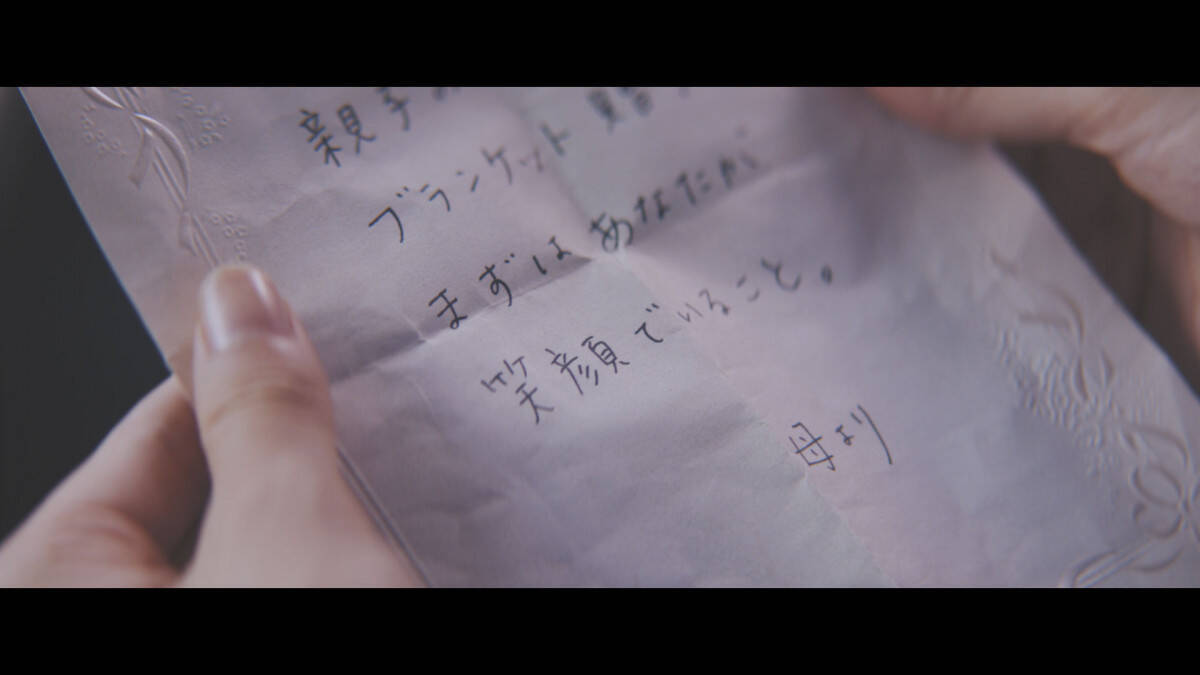 親子の
ブランケット 贈
まずはあなたが
笑顔でいること。
母より